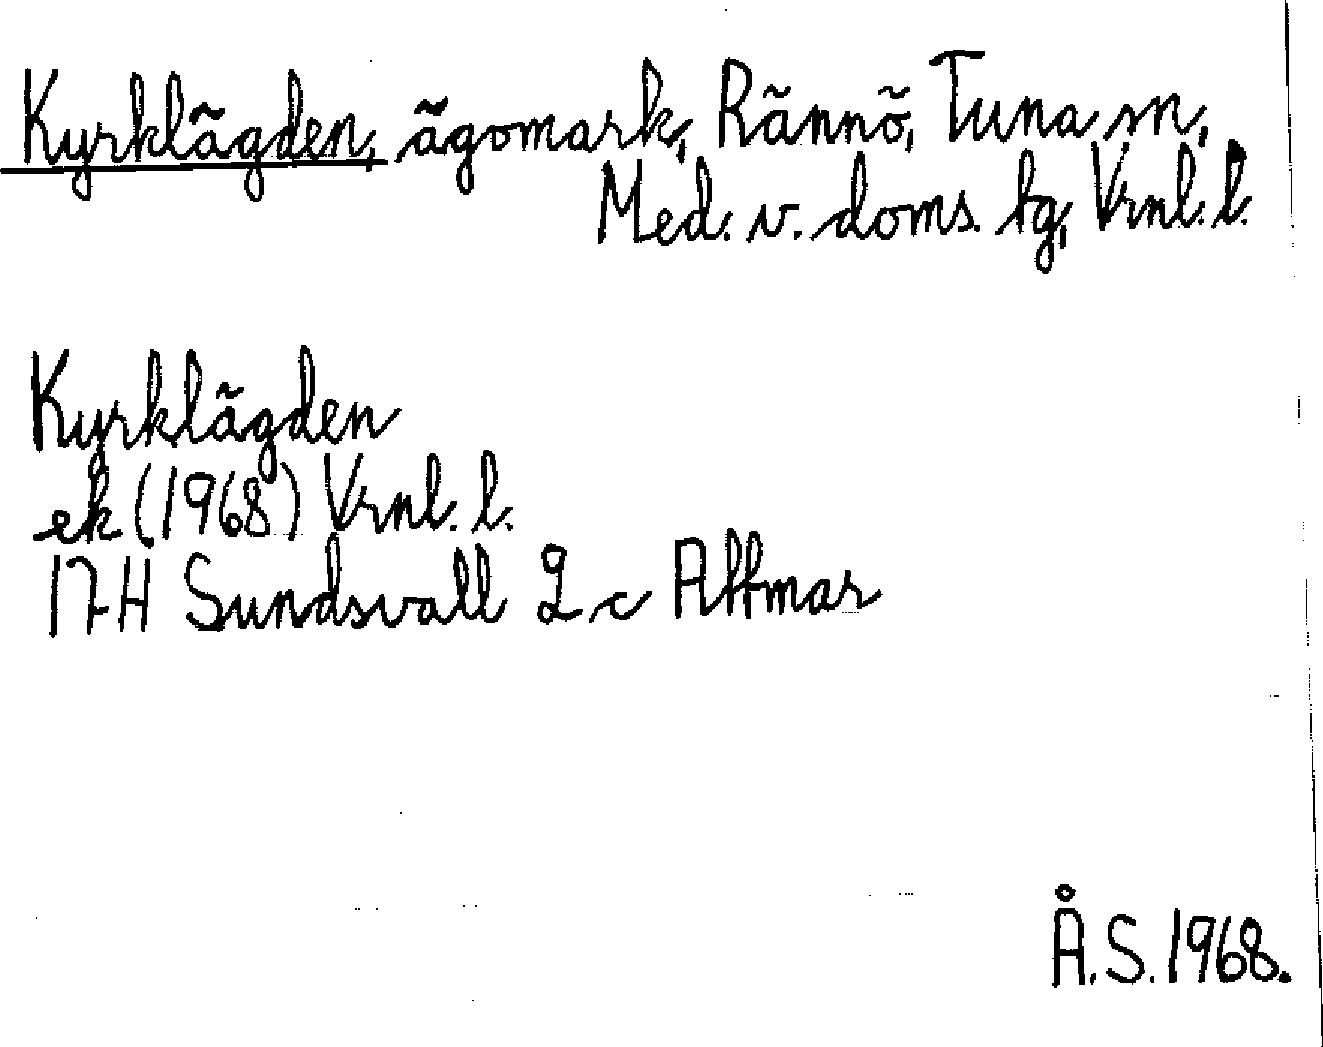 Kyrklägden, ägomark, Rännö, Tuna sn,
Med. v. doms. tg, Vrnl. l.
Kyrklägden
ek (1968) Vrnl. l.
17H Sundsvall 2 c Attmar
Å.S. 1968.